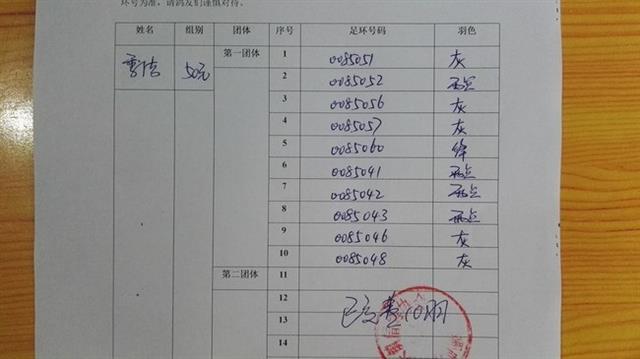 环号为准，请鸽友们谨慎对待。
姓名 组别 团体 序号 足环号码 羽色
50元 第一团体 1 0085051 灰
2 0085052 雨点
3 0085056 灰
4 0085057 灰
5 0085060 绛
6 0085041 雨点
7 0085042 雨点
8 0085043 雨点
9 0085046 灰
10 0085048 灰
第二团体 11
12
13
14